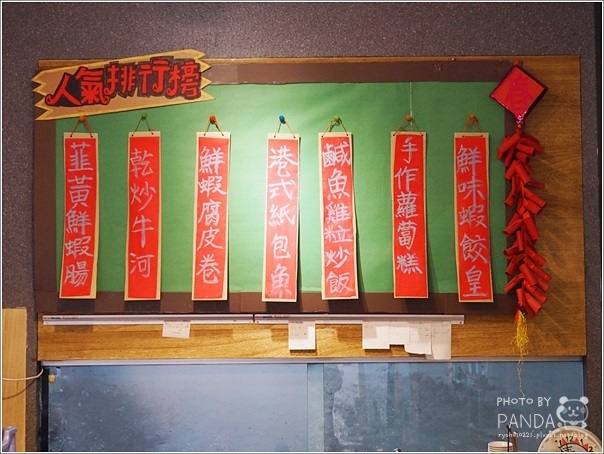 人氣排行榜
韮黃鮮蝦腸
乾炒牛河
鮮蝦腐皮卷
港式紙包魚
鹹魚雞粒炒飯
手作蘿蔔糕
鮮味蝦餃皇
PHOTO BY
PANDA